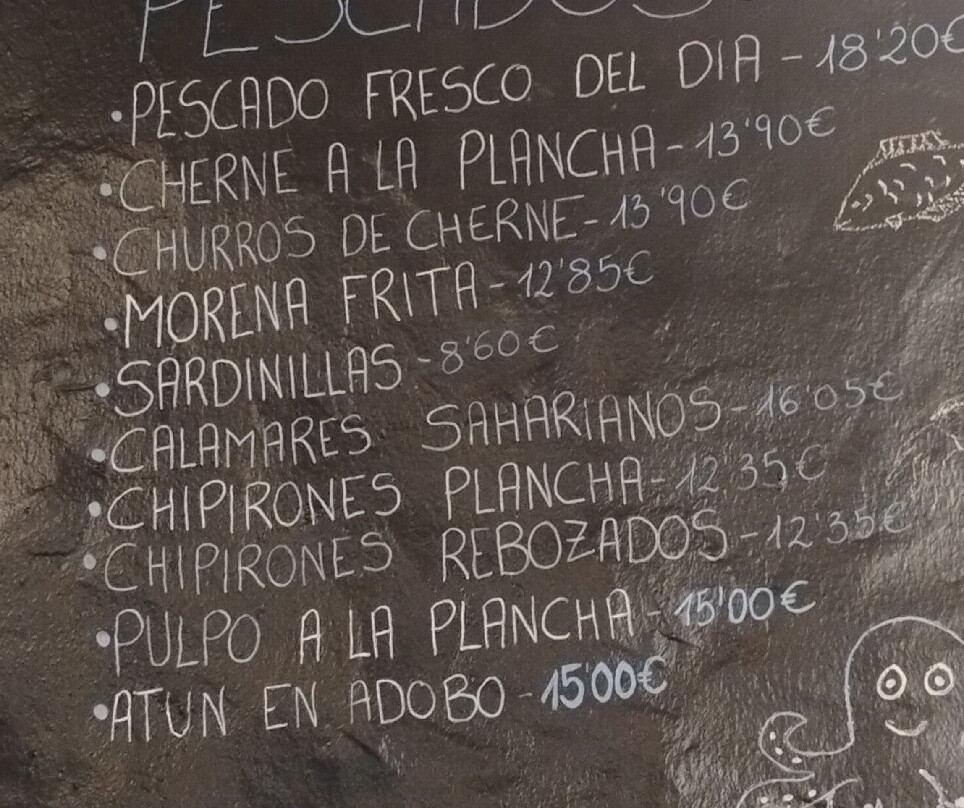 PESCADOS
•PESCADO FRESCO DEL DIA - 18'20€
•CHERNE A LA PLANCHA - 13'90€
•CHURROS DE CHERNE - 13'90€
•MORENA FRITA - 12'85€
•SARDINILLAS - 8'60€
•CALAMARES SAHARIANOS - 16'05€
•CHIPIRONES PLANCHA - 12'35€
•CHIPIRONES REBOZADOS - 12'35€
•PULPO A LA PLANCHA - 15'00€
•ATUN EN ADOBO - 15'00€